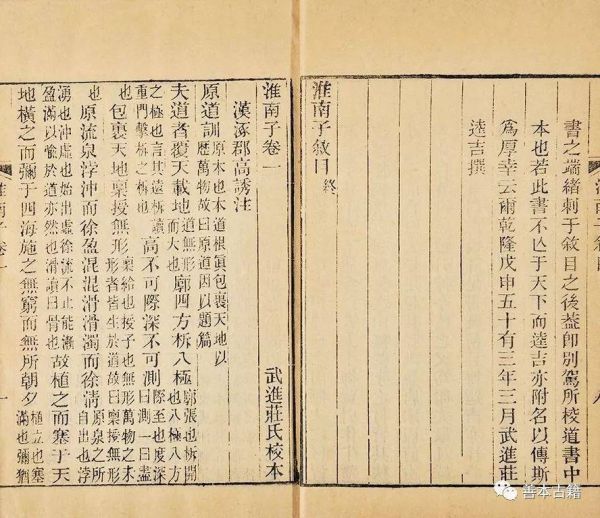 淮南子敘目
八
書之端緒刺于敘目之後葢卽別駕所校道書中
本也若此書不亾于天下而逵吉亦附名以傳斯
爲厚幸云爾乾隆戊申五十有三年三月武進莊
逵吉撰
淮南子敘目 終
淮南子卷一 武進莊氏校本
漢涿郡高誘注
原道訓 原本也本道根眞包裹天地以歷萬物故曰原道因以題篇
夫道者覆天載地 道無形而大也 廓四方柝八極 廓張也柝開也八極八方
之極也言其遠柝讀重門擊柝之柝也 高不可際深不可測 際至也度深曰測一曰盡
也 包裹天地稟授無形 稟給也授予也無形萬物之未形者皆生於道故曰稟授無形
也 原流泉浡沖而徐盈混混滑滑濁而徐清 原泉之所自出也浡
湧也沖虛也始出虛徐流不止能漸盈滿以喻於道亦然也滑讀曰骨也 故植之而塞于天
地橫之而彌于四海施之無窮而無所朝夕 植立也塞滿也彌猶
淮南子卷一
一
善本古籍